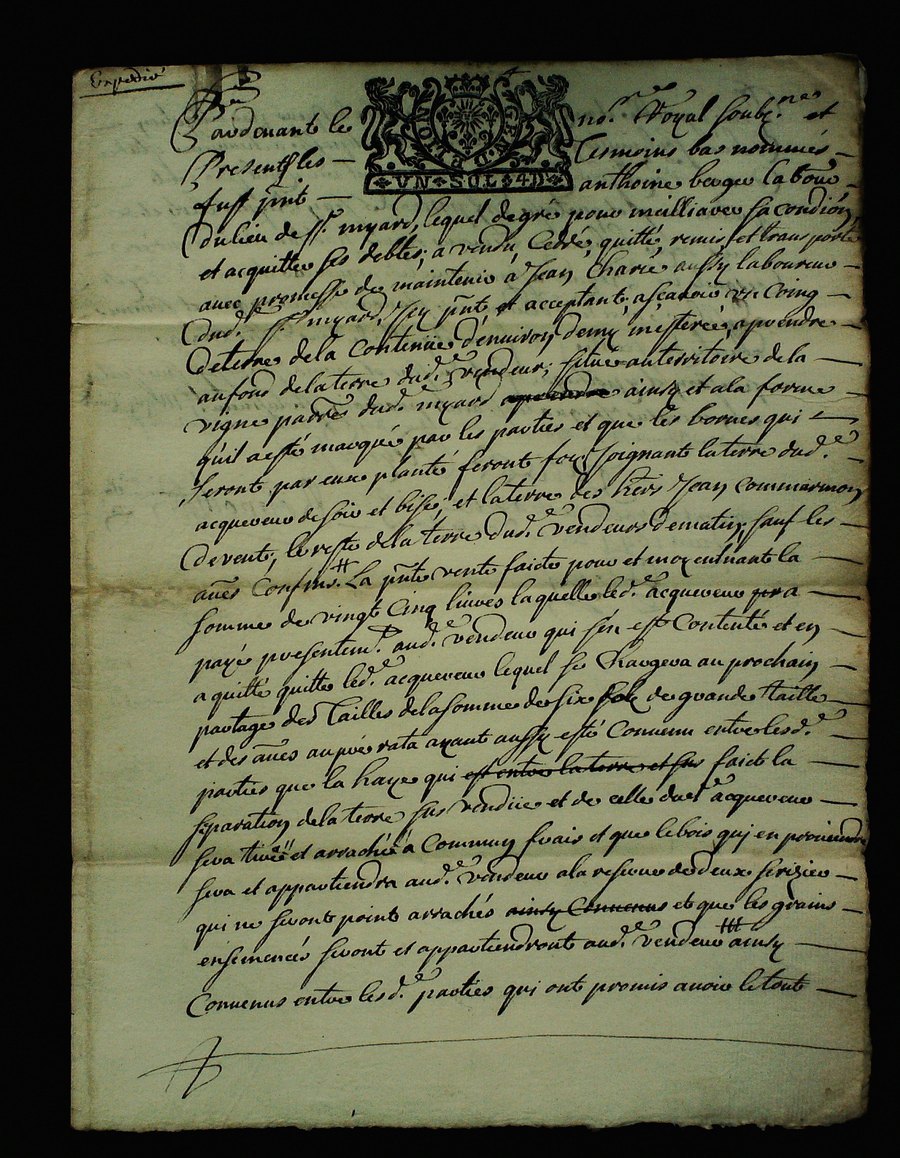 Expedié
Pardevant le no.re Royal soubz.né et
Presents les tesmoins bas nommés
fust pnt anthoine labour
du lieu de St. myard, lequel de gré pour meilliaver sa condiōn
et acquitter ses debtes, a vendu, Cedé, quitté, remis, et transporté
avec promesse de maintenir à Jean Charié aussy laboureur
dud. St. myard, Icy pnt, et acceptant, ascavoir un Coing
de terre de la Contenüe d'environ demy mesterée, a prendre
au fond de la terre dud. vendeur; située au territoire de la
vigne dud. myard aprendre ainsy et a la forme
qu'il a esté marqué par les parties et que les bornes qui
seront par eux planté feront foy, Joignant la terre dud.
acquereur de soir et bise, et la terre des hērs Jean Commarmon
de vent, le reste de la terre dud. vendeurs de matin, sauf les
aūes Confins. # La pnte vente faicte pour et moyennant la
somme de vingt Cinq livres laquelle led. acquereur a
payé presentem.t aud. vendeur qui s'en est Contenté et en
a quitté quitte led. acquereur lequel se Chargera au prochain
partage des Tailles de la somme de six sols de grande taille
et des aūes au pro rata ayant aussy esté Convenu entre lesd.
parties que la haye qui est entre la terre et sus faict la
separation de la terre sus vendüe et de celle dud. acquereur
sera tirée et arrachée à Commun frais et que le bois qui en proviendra
sera et appartiendra aud. vendeur a la reserve de deux serizier
qui ne seront point arrachés ainsy Convenus et que les grains
ensemencés seront et appartiendront aud. vendeur ainsy
Convenus entre lesd. parties qui ont promis avoir le tout
UN SOL 4D